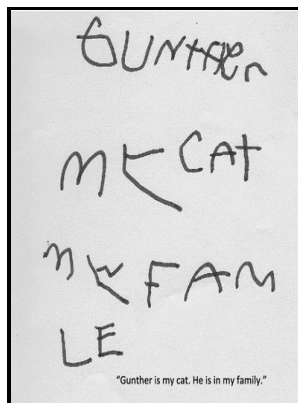 GUNTHER
MY CAT
MY FAM
LE
"Gunther is my cat. He is in my family."